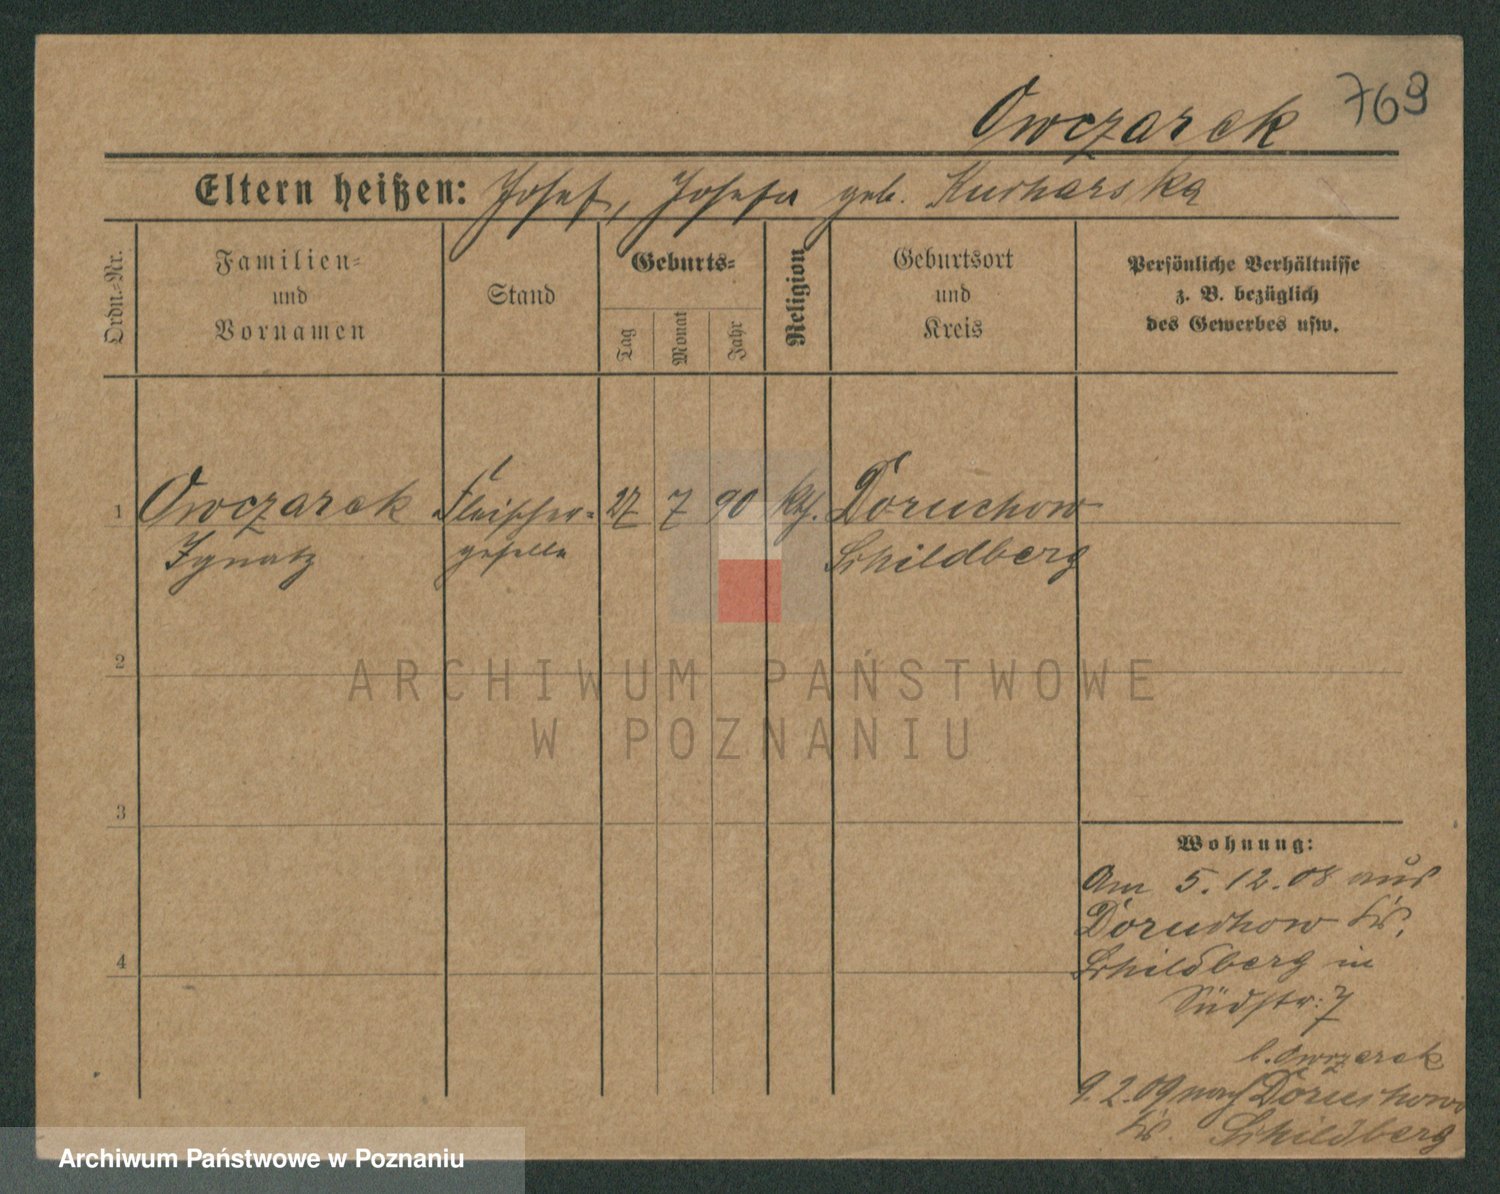 769
Owczarek
Eltern heißen: Josef, Josefa geb. Kucharska
Ordn.-Nr.
Familien-
und
Vornamen
Stand
Geburts-
Tag
Monat
Jahr
Religion
Geburtsort
und
Kreis
Persönliche Verhältnisse
z. B. bezüglich
des Gewerbes usw.
1 Owczarek Fleischer- 27 7 90 kth. Doruchow
Ignatz geselle Schildberg
2
3
4
Wohnung:
Am 5.12.08 aus
Doruchow Kr.
Schildberg in
Südstr: 7
b. Owczarek
9.2.09 nach Doruchow
Kr. Schildberg
ARCHIWUM PAŃSTWOWE
W POZNANIU
Archiwum Państwowe w Poznaniu